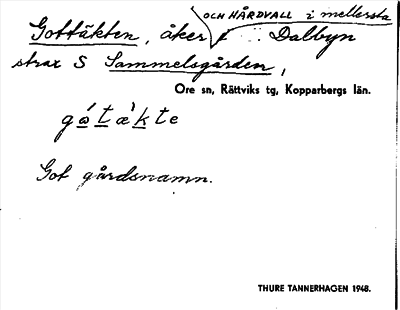 OCH HÅRDVALL i mellersta
Gottäkten, åker i Dalbyn
strax S Sammelsgården,
Ore sn, Rättviks tg, Kopparbergs län.
gá̱ṯæ̀ḵte
Got gårdsnamn.
THURE TANNERHAGEN 1948.